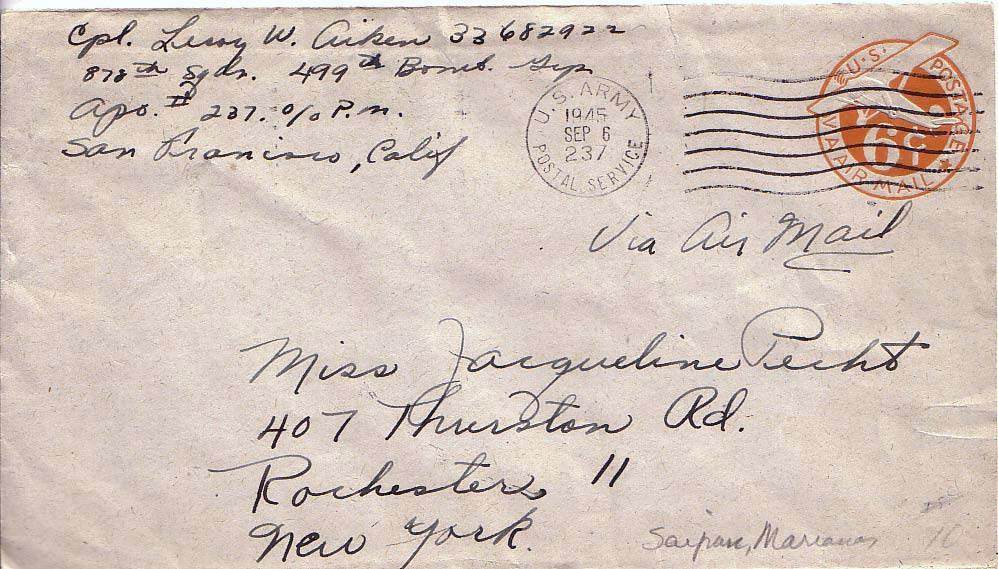 Cpl. Leroy W. Aiken 33682922
878th Sqdn. 499th Bomb. Grp
Apo. # 237. c/o P.m.
San Francisco, Calif
U.S. ARMY
1945
SEP 6
237
POSTAL SERVICE
U.S. POSTAGE
6¢
VIA AIR MAIL
Via Air Mail
Miss Jacqueline Pecht
407 Thurston Rd.
Rochester 11
New York.
Saipan, Marianas